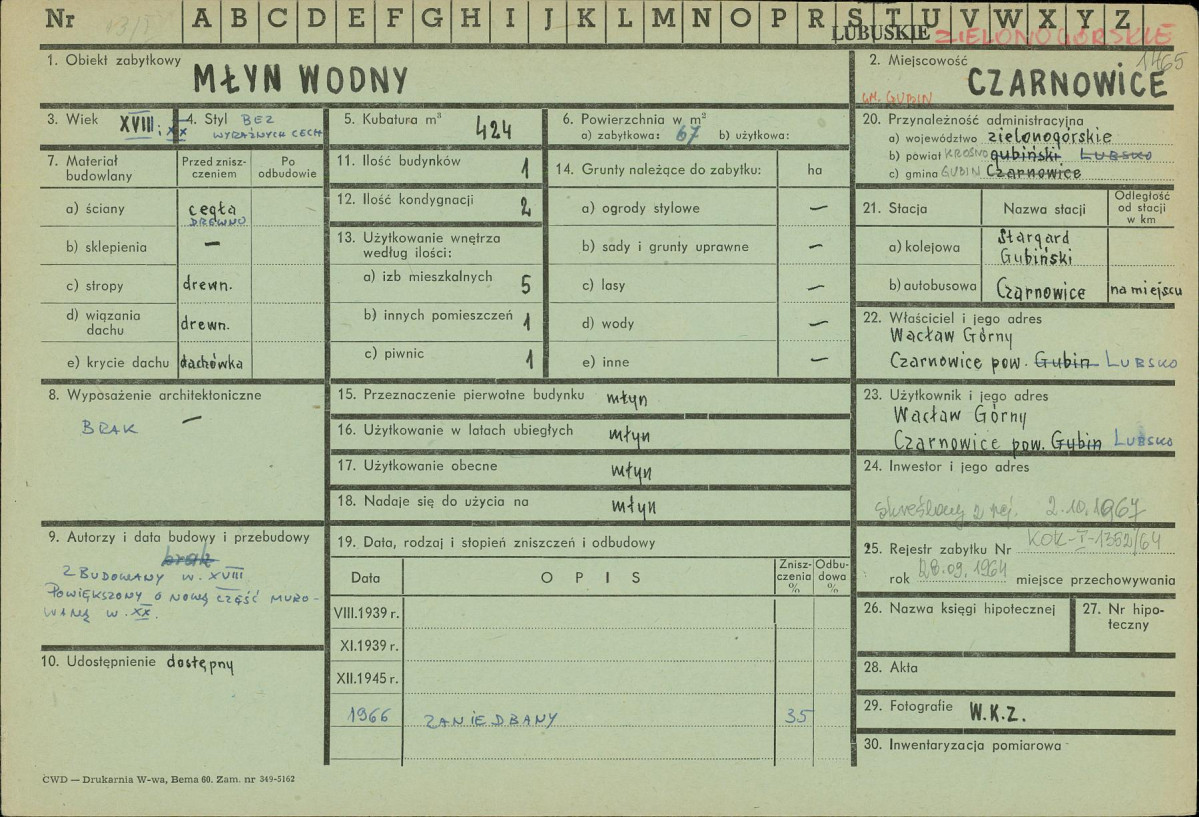 Nr
A B C D E F G H I J K L M N O P R S T U V W X Y Z
LUBUSKIE ZIELONOGÓRSKIE
1465
1. Obiekt zabytkowy
MŁYN WODNY
2. Miejscowość
CZARNOWICE
GM. GUBIN
3. Wiek XVIII i XX
4. Styl BEZ
WYRAŹNYCH CECH
5. Kubatura m³ 424
6. Powierzchnia w m²
a) zabytkowa: 67 b) użytkowa:
20. Przynależność administracyjna
a) województwo zielonogórskie
b) powiat KROSNO gubiński LUBSKO
c) gmina GUBIN Czarnowice
7. Materiał
budowlany
Przed znisz-
czeniem
Po
odbudowie
a) ściany cegła
DREWNO
b) sklepienia —
c) stropy drewn.
d) wiązania
dachu drewn.
e) krycie dachu dachówka
11. Ilość budynków 1
12. Ilość kondygnacji 2
13. Użytkowanie wnętrza
według ilości:
a) izb mieszkalnych 5
b) innych pomieszczeń 1
c) piwnic 1
14. Grunty należące do zabytku: ha
a) ogrody stylowe —
b) sady i grunty uprawne —
c) lasy —
d) wody —
e) inne —
21. Stacja Nazwa stacji
Odległość
od stacji
w km
a) kolejowa Stargard
Gubiński
b) autobusowa Czarnowice na miejscu
22. Właściciel i jego adres
Wacław Górny
Czarnowice pow. Gubin LUBSKO
8. Wyposażenie architektoniczne
—
BRAK
15. Przeznaczenie pierwotne budynku młyn
16. Użytkowanie w latach ubiegłych młyn
17. Użytkowanie obecne młyn
18. Nadaje się do użycia na młyn
23. Użytkownik i jego adres
Wacław Górny
Czarnowice pow. Gubin LUBSKO
24. Inwestor i jego adres
skreślony z rej. 2.10.1967
9. Autorzy i data budowy i przebudowy
brak
ZBUDOWANY W. XVIII
POWIĘKSZONY O NOWĄ CZĘŚĆ MURO-
WANĄ W. XX.
10. Udostępnienie dostępny
19. Data, rodzaj i stopień zniszczeń i odbudowy
Data OPIS
Znisz-
czenia
%
Odbu-
dowa
%
VIII.1939 r.
XI.1939 r.
XII.1945 r.
1966 ZANIEDBANY 35
25. Rejestr zabytku Nr KOK-I-1352/64
rok 28.09.1964 miejsce przechowywania
26. Nazwa księgi hipotecznej
27. Nr hipo-
teczny
28. Akta
29. Fotografie W.K.Z.
30. Inwentaryzacja pomiarowa
CWD — Drukarnia W-wa, Bema 60. Zam. nr 349-5162